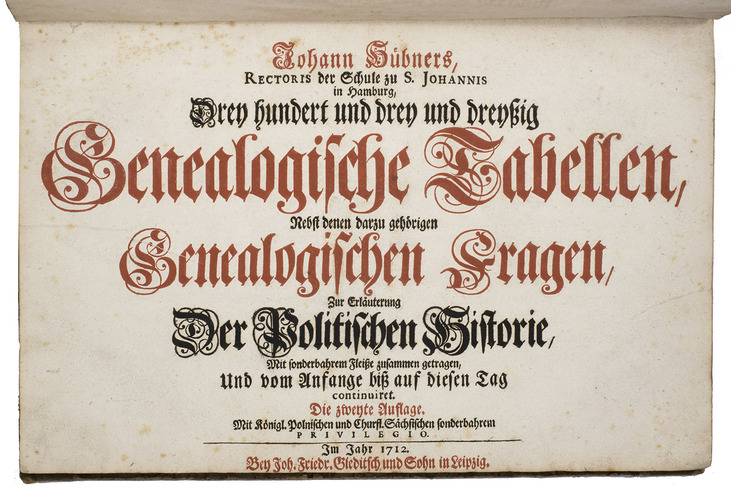 Johann Hübners,
RECTORIS der Schule zu S. JOHANNIS
in Hamburg,
Drey hundert und drey und dreyßig
Genealogiſche Tabellen,
Nebſt denen darzu gehörigen
Genealogiſchen Fragen,
Zur Erläuterung
Der Politiſchen Hiſtorie,
Mit ſonderbahrem Fleiße zuſammen getragen,
Und vom Anfange biß auf dieſen Tag
continuiret.
Die zweyte Auflage.
Mit Königl. Polniſchen und Churfl. Sächſiſchen ſonderbahrem
PRIVILEGIO.
Im Jahr 1712.
Bey Joh. Friedr. Gleditſch und Sohn in Leipzig.